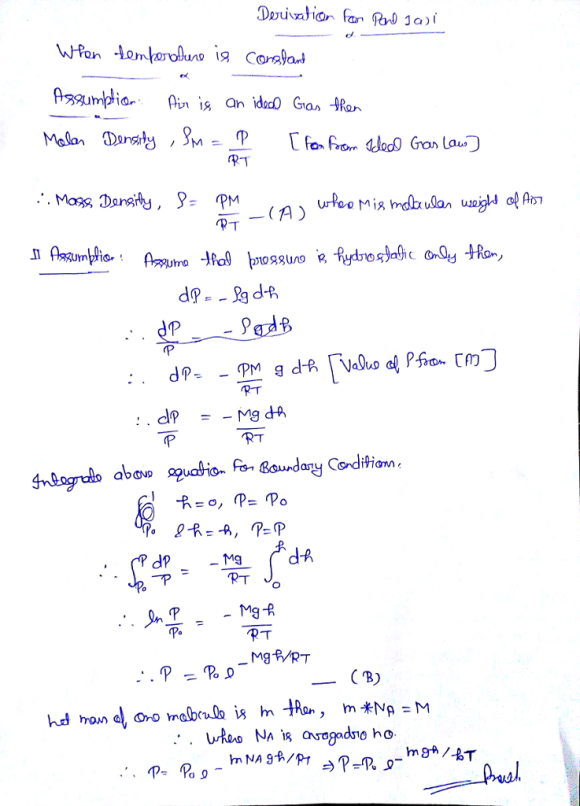 Derivation for Part 1a) i
When temperature is constant
Assumption: Air is an ideal Gas then
Molar Density, ρM = P/RT [For from Ideal Gas Law]
∴ Mass Density, ρ = PM/RT — (A) where M is molecular weight of Air
II Assumption: Assume that pressure is hydrostatic only then,
dP = - ρg dh
∴ dP/P = - ρg dh
∴ dP = - PM/RT g dh [Value of ρ from [A]]
∴ dP/P = - Mg dh/RT
Integrate above equation for Boundary Conditions.
h=0, P= P₀
& h=h, P=P
∴ ∫_{P₀}^{P} dP/P = -Mg/RT ∫_{0}^{h} dh
∴ ln P/P₀ = - Mgh/RT
∴ P = P₀ e^{-Mgh/RT} — (B)
Let mass of one molecule is m then, m*NA = M
∴ where NA is avogadro no.
∴ P= P₀ e^{-mNAgh/RT} ⇒ P=P₀ e^{-mgh/kT}